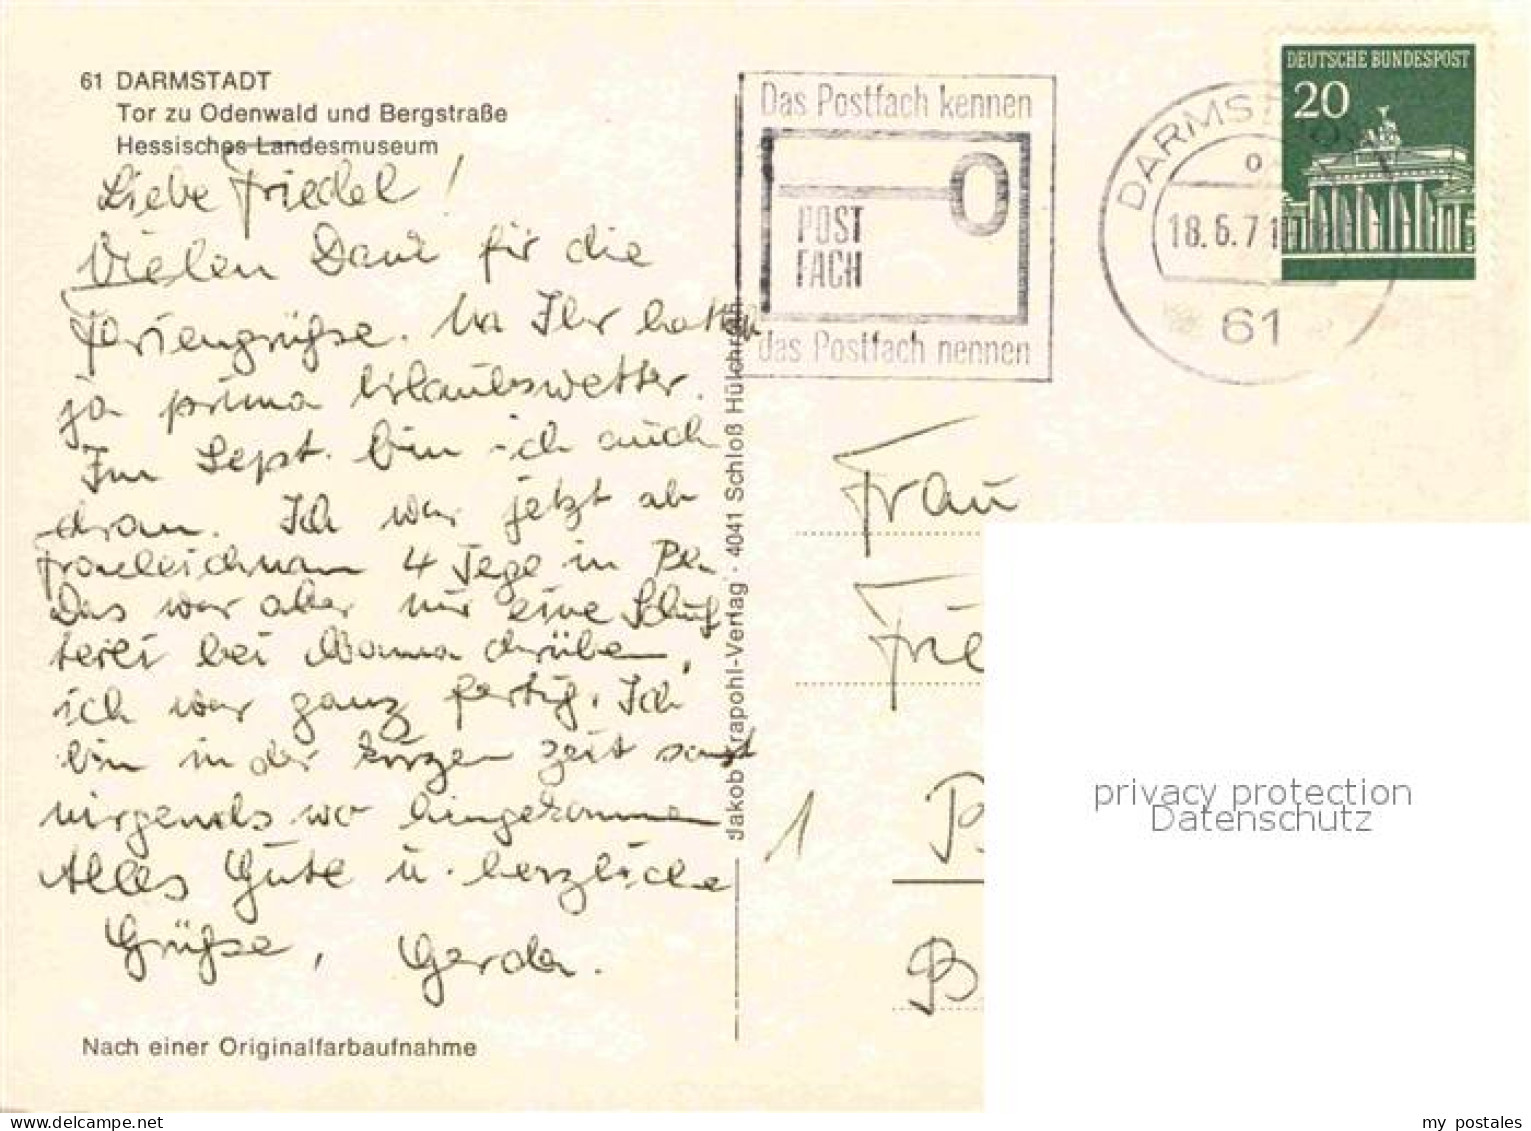 61 DARMSTADT
Tor zu Odenwald und Bergstraße
Hessisches Landesmuseum
Liebe Friedel!
Vielen Dank für die
Feriengrüße. Na Ihr hattet
ja prima Urlaubswetter.
Im Sept. bin ich auch
dran. Ich war jetzt ab
Fronleichnam 4 Tage in
Das war aber nur eine Schuf
terei bei Mama drüben,
ich war ganz fertig. Ich
bin in der kurzen Zeit sonst
nirgends wo hingekommen
Alles Gute u. herzliche
Grüße, Gerda.
Nach einer Originalfarbaufnahme
Jakob Krapohl-Verlag · 4041 Schloß Hülchrath
Das Postfach kennen
POST
FACH
das Postfach nennen
DARMSTADT
18.6.71
61
DEUTSCHE BUNDESPOST
20
Frau
Frie
1
B
privacy protection
Datenschutz
www.delcampe.net
my_postales